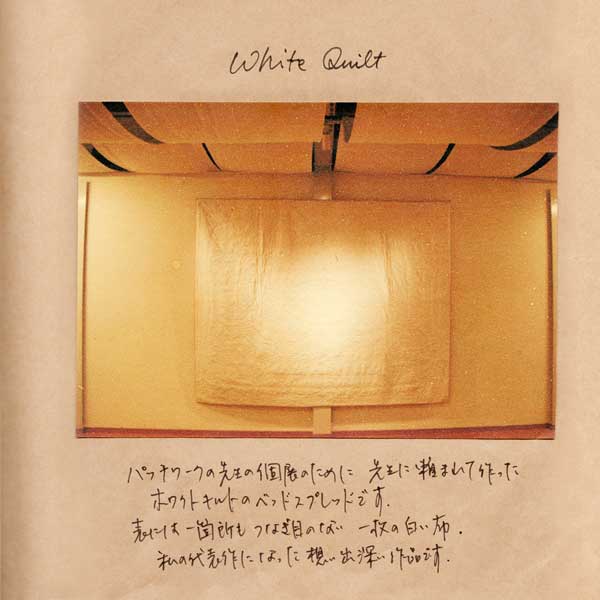 White Quilt
パッチワークの先生の個展のために 先生に頼まれて作った
ホワイトキルトのベッドスプレッドです.
表には一箇所もつなぎ目のない 一枚の白い布.
私の代表作になった想い出深い作品です.